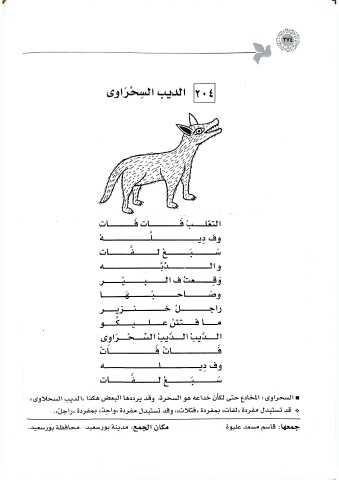 ٢٧٤
٢٠٤ الديب السِحْرَاوى
التعلب فَات فَات
وف دِيلُه
سَبَع لفَّات
والدبَّه
وَقِعتْ ف البير
وصَاحبْهَا
راجل خنزير
ما فتش عليكو
الديبُ الديبُ السَّحْرَاوى
فَات فَاتْ
وف ديله
سَبَع لفَّات
■ السحراوى: المخادع حتى لكأن خداعه هو السحرة. وقد يرددها البعض هكذا «الديب السحلاوى»
* قد تستبدل مفردة «لفات» بمفردة «فتلات»، وقد تستبدل مفردة «واجِدْ» بمفردة «راجل».
جمعها: قاسم مسعد عليوة مكان الجمع: مدينة بورسعيد - محافظة بورسعيد.